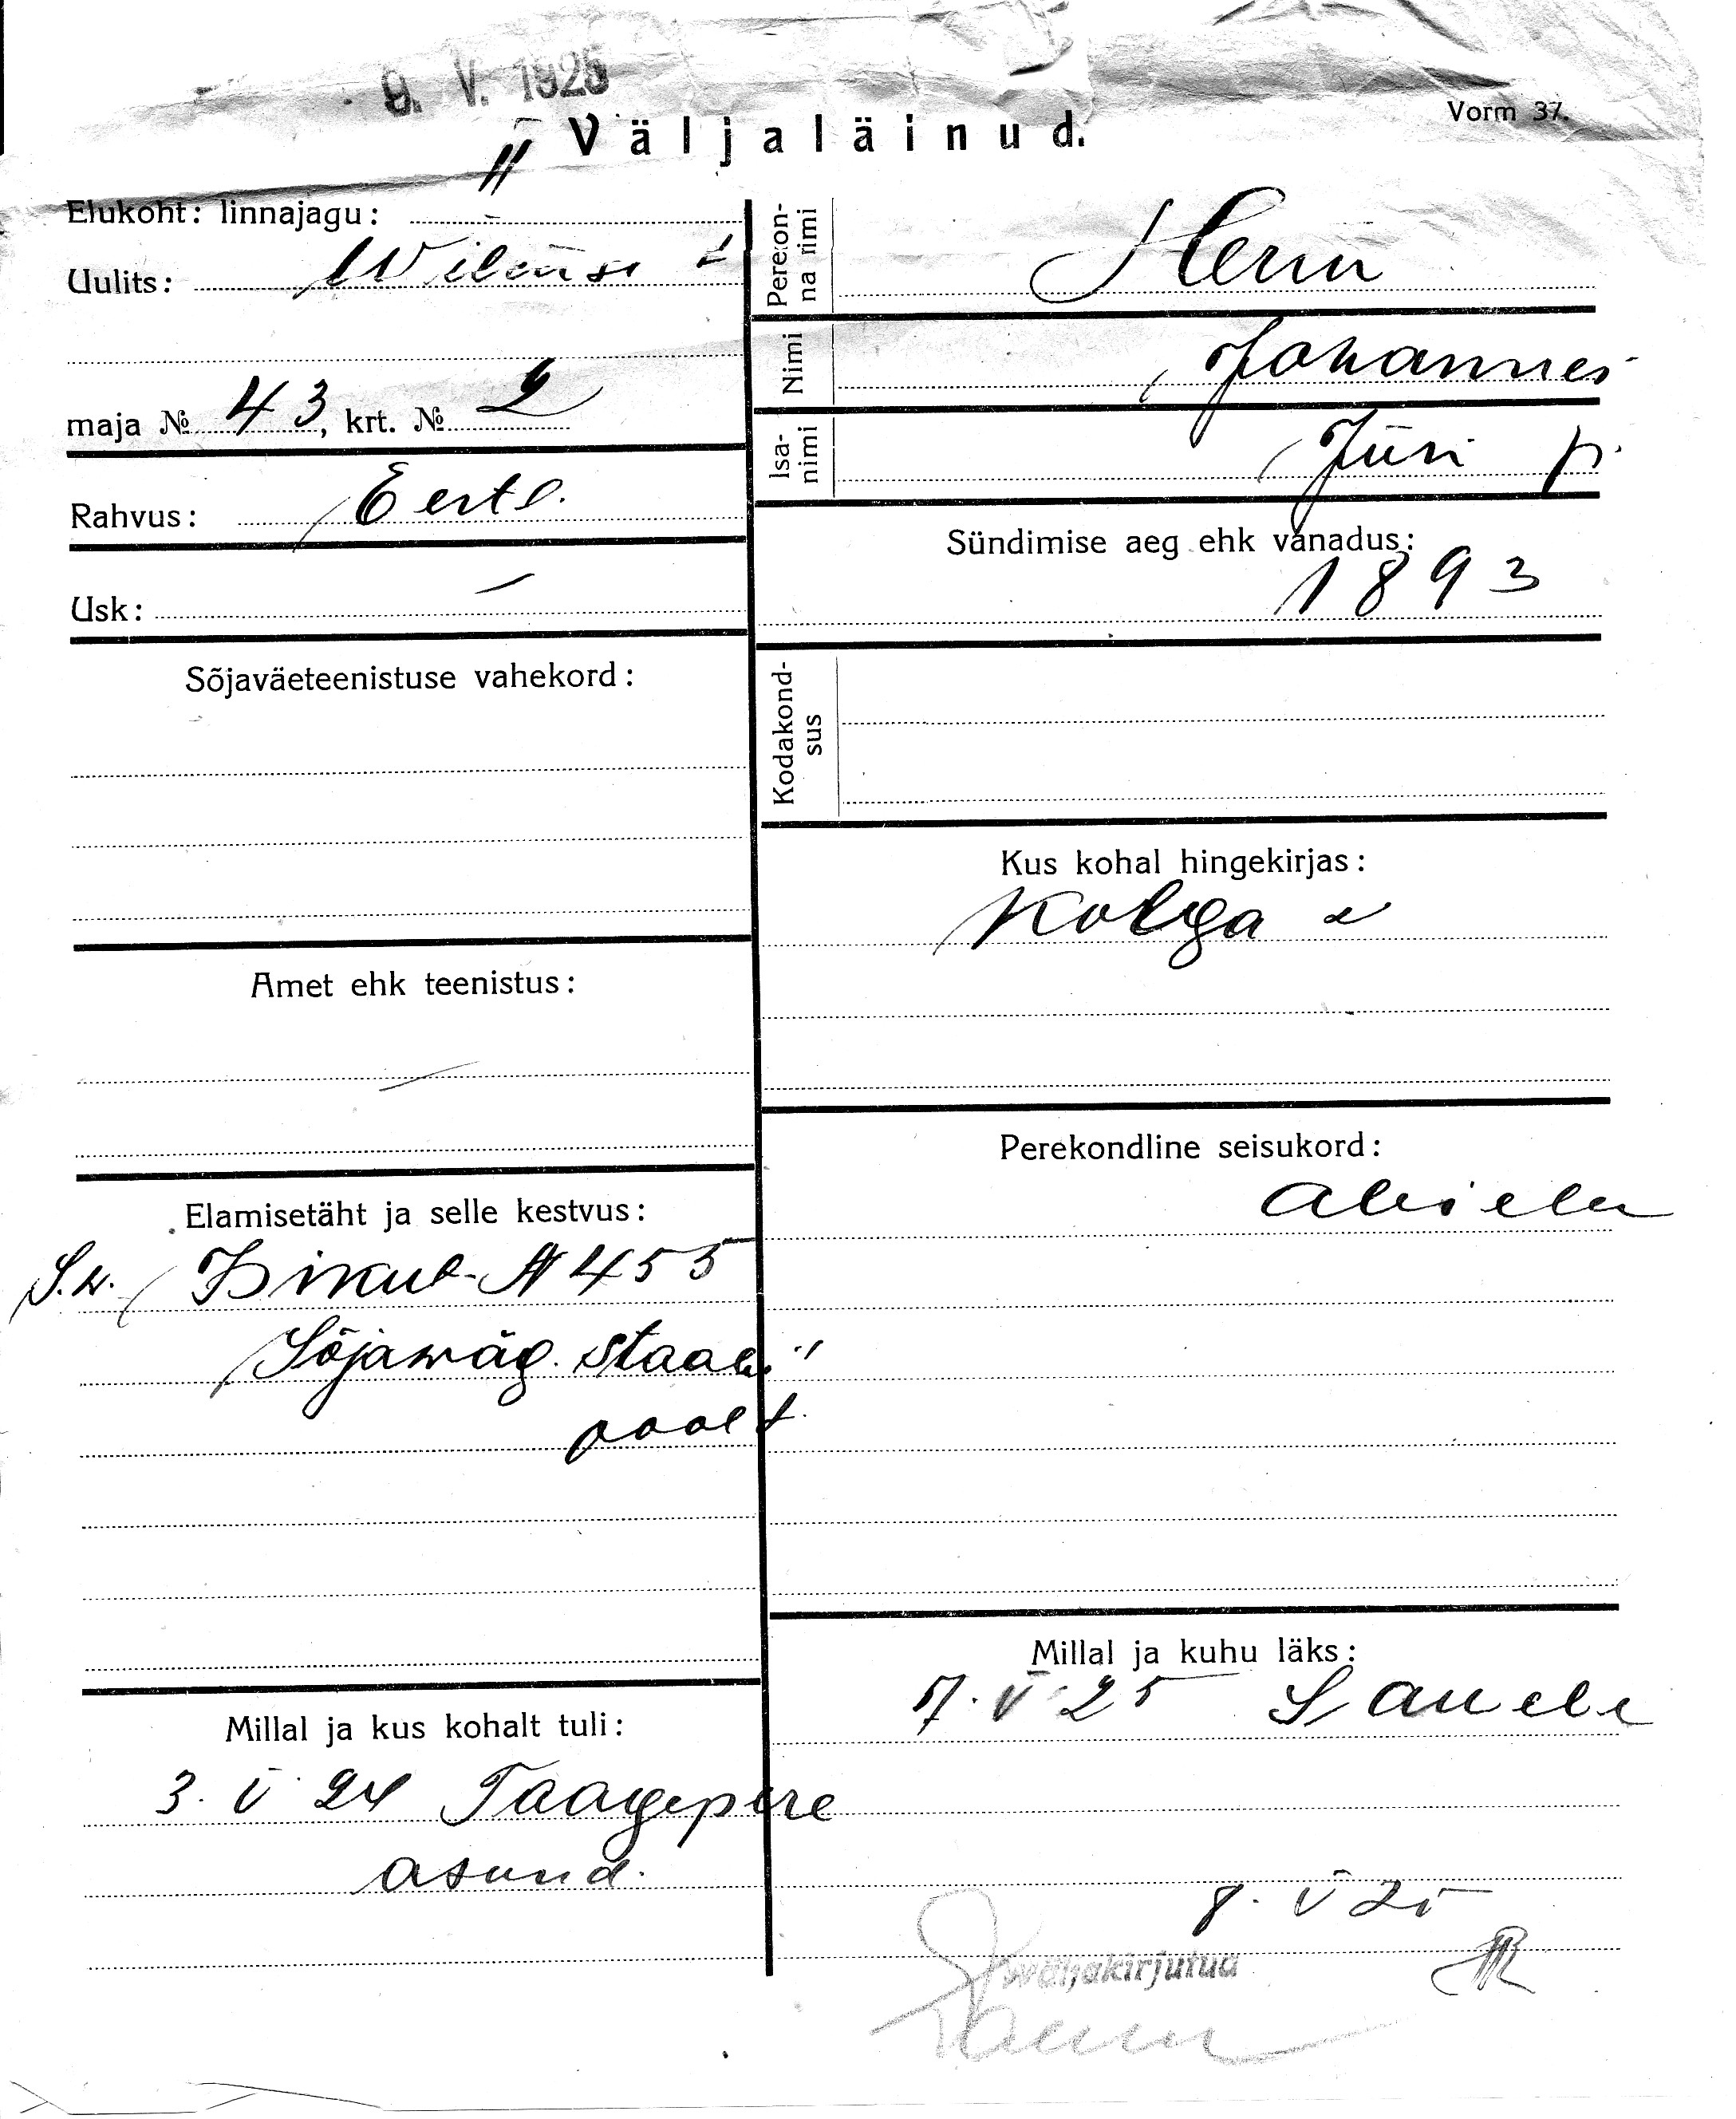 9. V. 1925
Vorm 37.
Väljaläinud.
Elukoht: linnajagu: II
Uulits: Wilmsi t
maja № 43, krt. № 2
Rahvus: Eestl.
Usk: —
Sõjaväeteenistuse vahekord:
Amet ehk teenistus:
—
Elamisetäht ja selle kestvus:
S.w. Pikul N 455
Sõjawäg. staabi
poolt
Millal ja kus kohalt tuli:
3. V 24 Taagepere
asund.
Perekonna nimi Henn
Nimi Johannes
Isanimi Jüri p.
Sündimise aeg ehk vanadus:
1893
Kodakondsus
Kus kohal hingekirjas:
Kolga v
Perekondline seisukord:
abielu
Millal ja kuhu läks:
7. V 25 Sauele
8. V 25
Wäljakirjutud